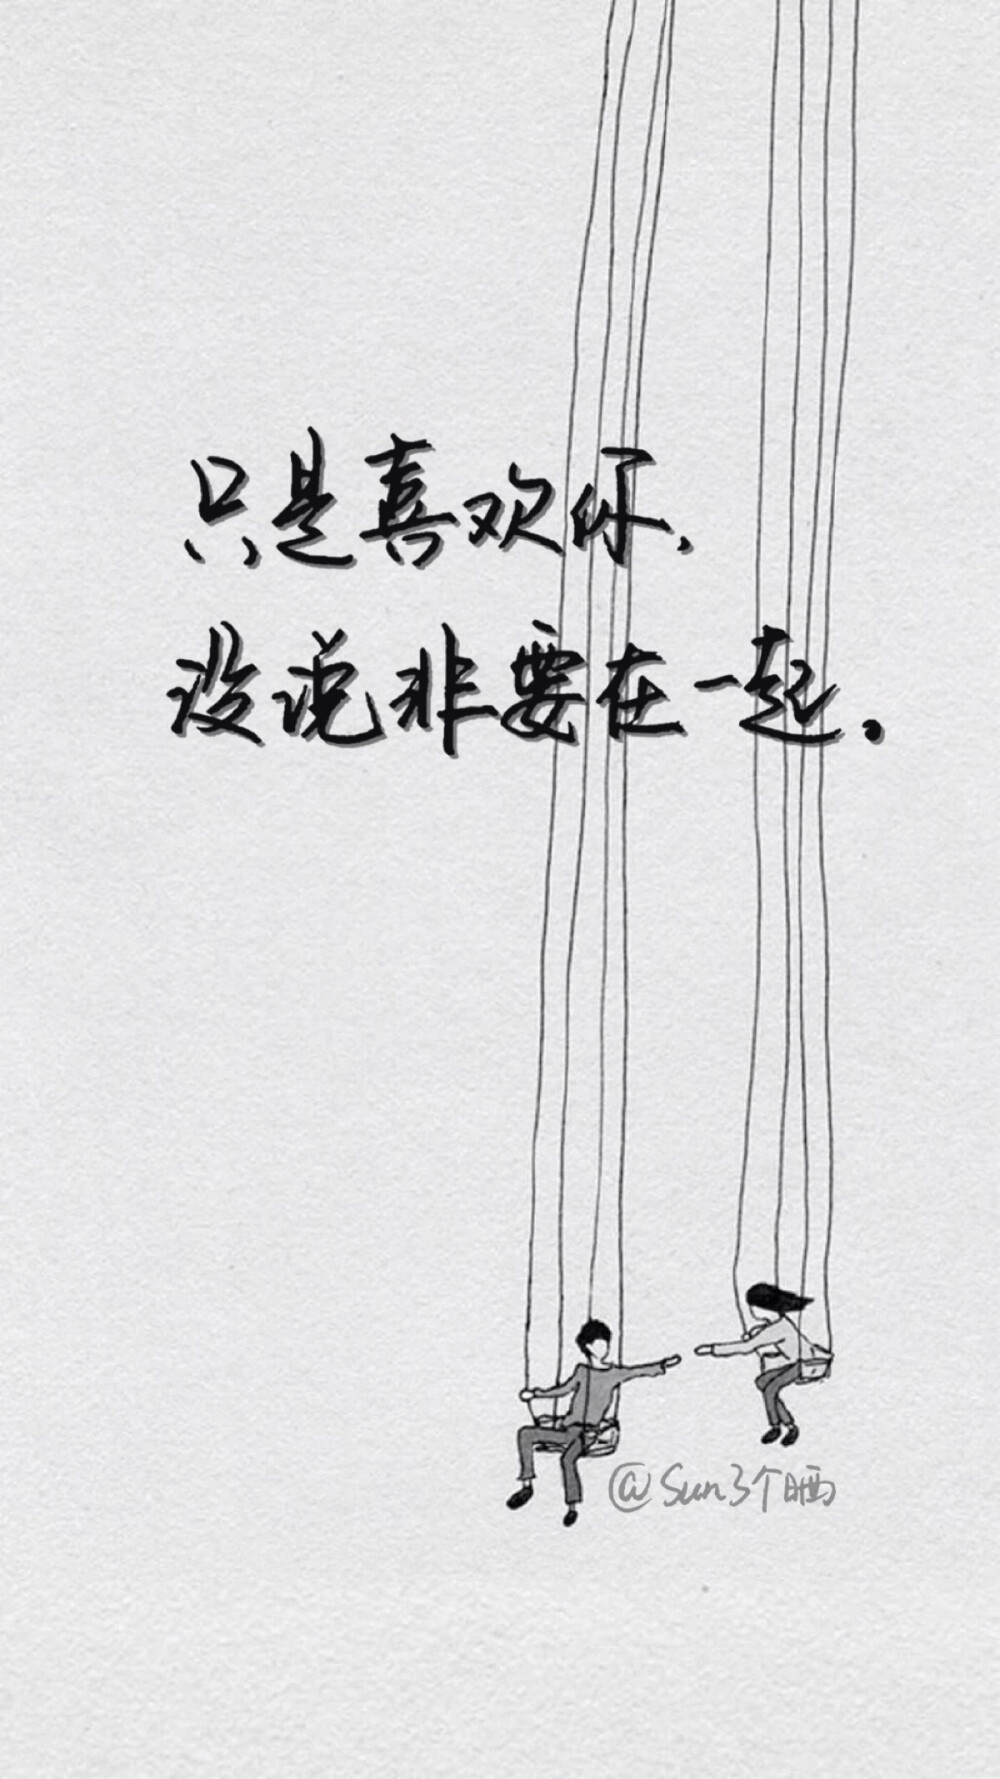 只是喜欢你.
没说非要在一起.
@Sun3个晒